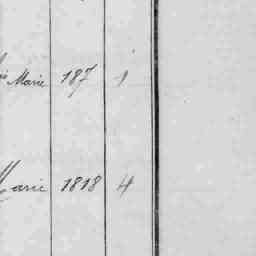 Marie 187 1
Marie 1818 4